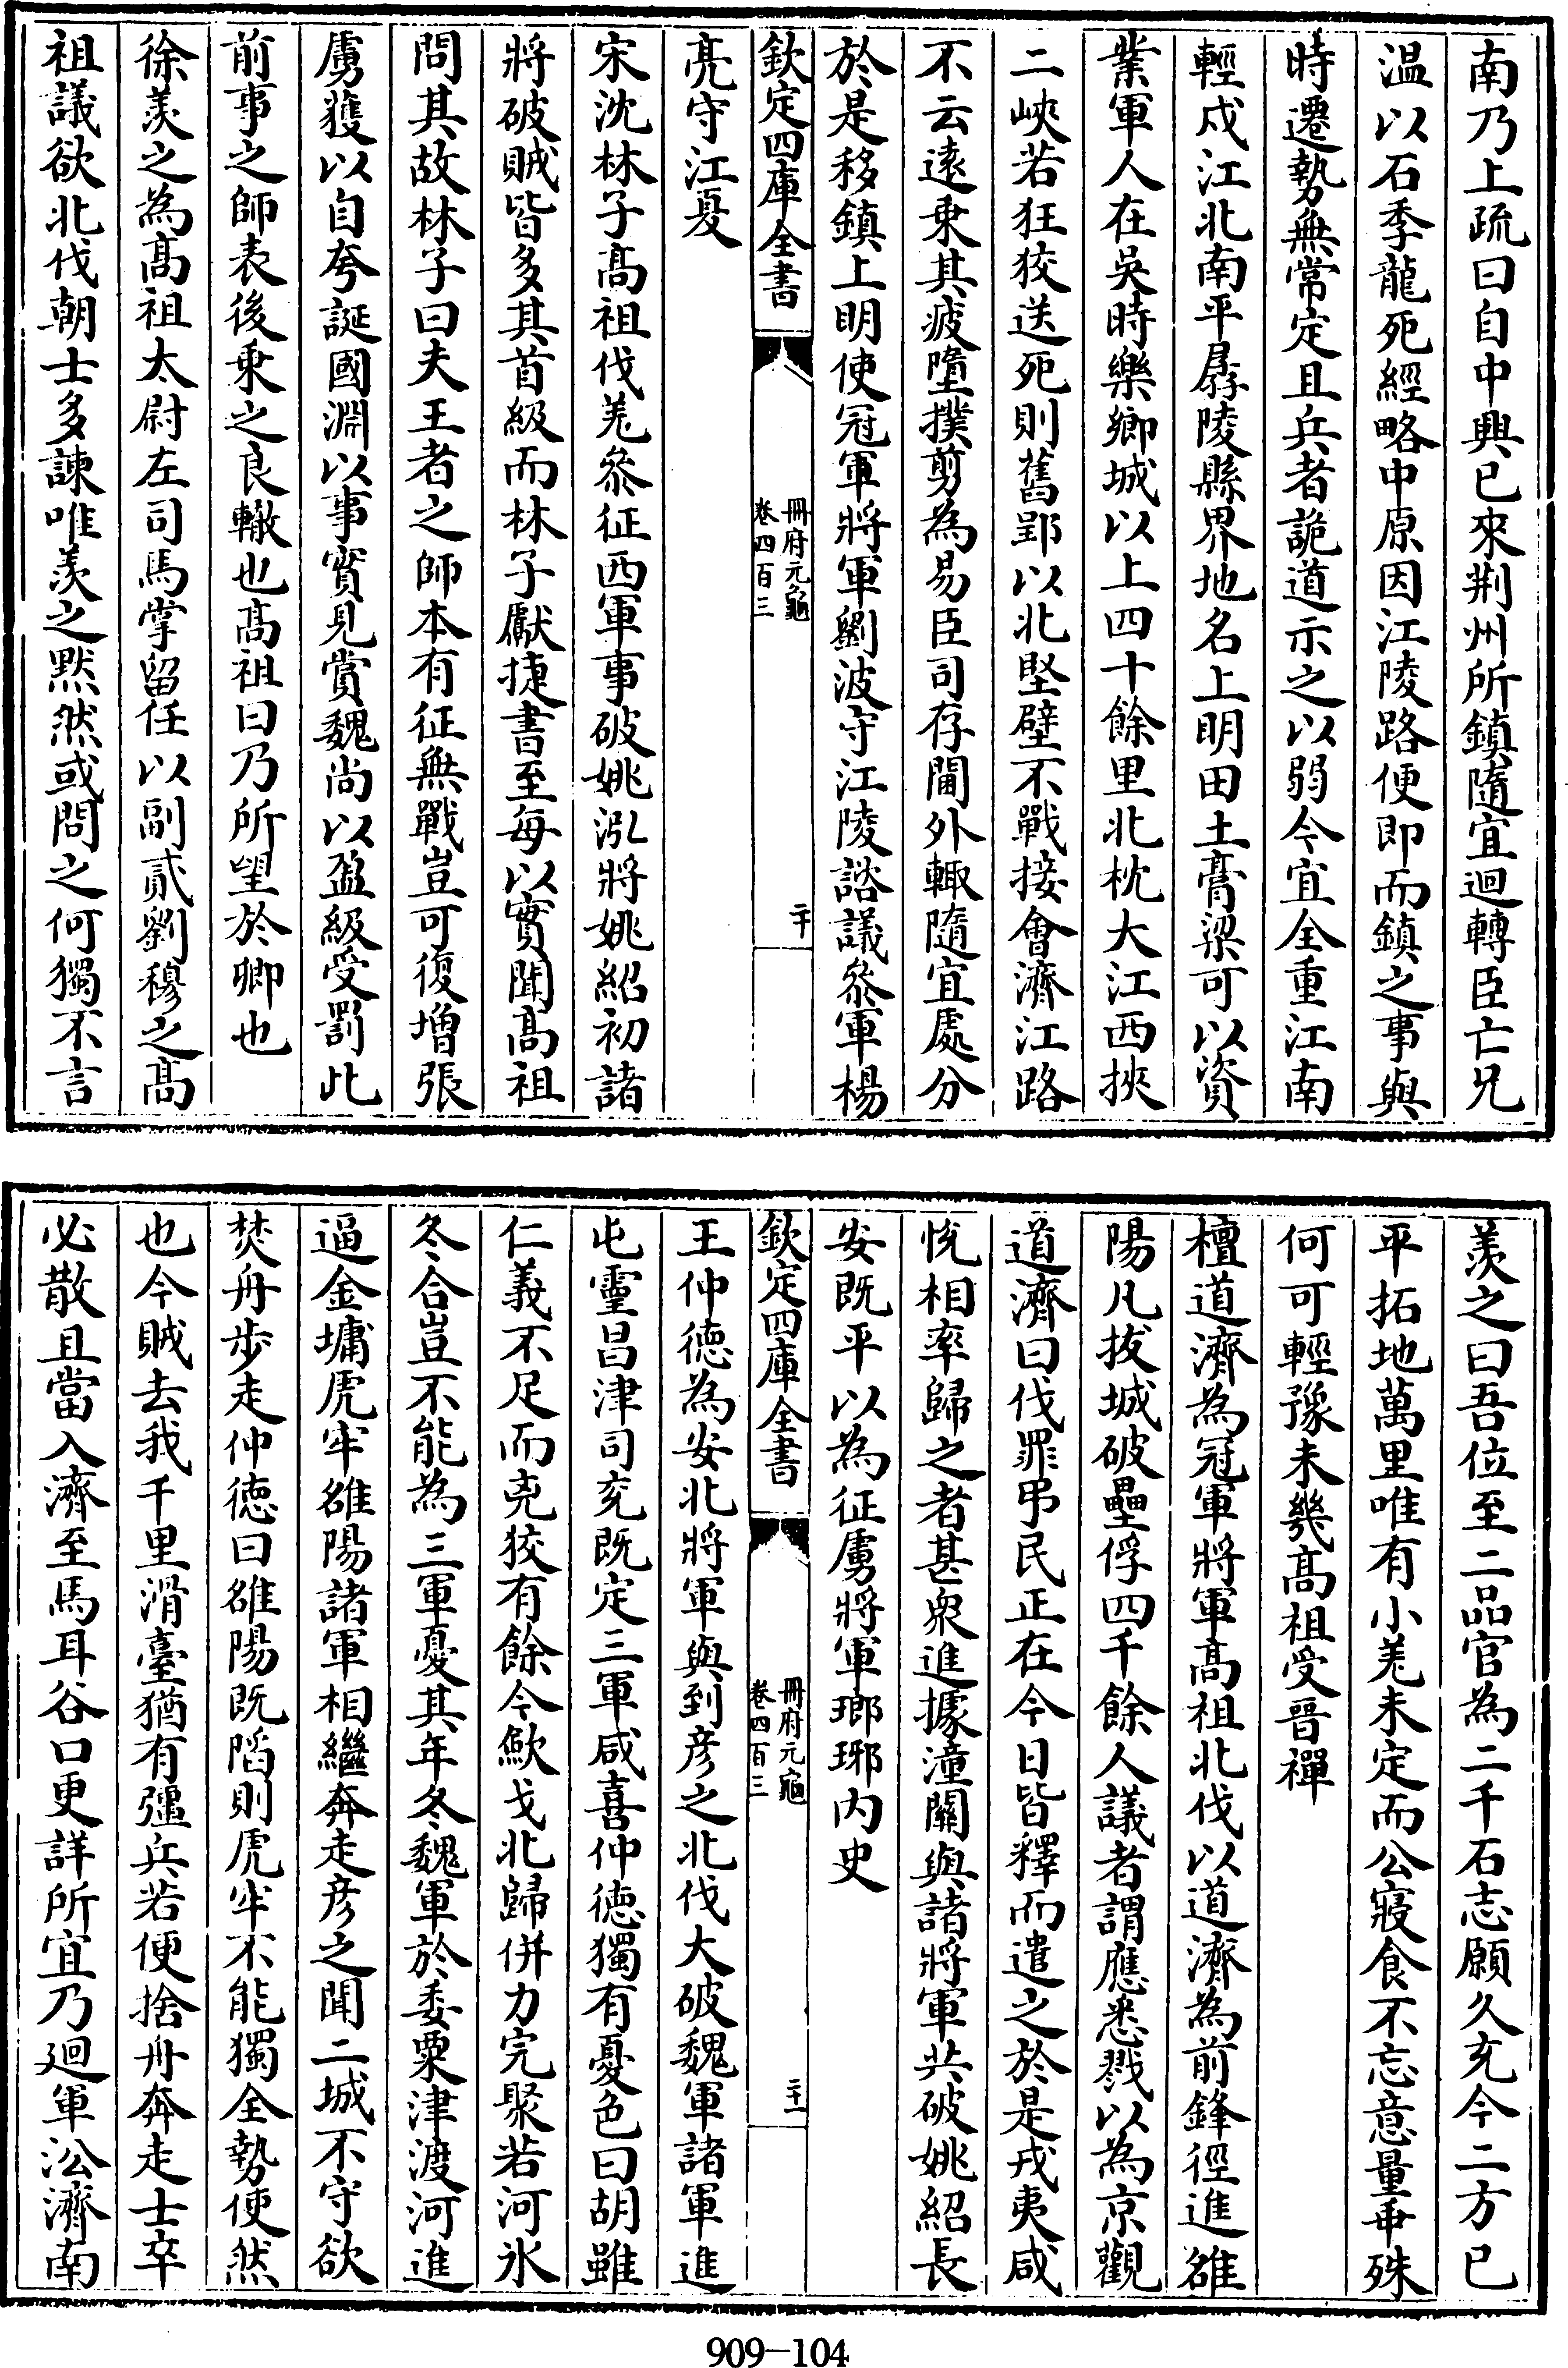 南乃上疏曰自中興已來荆州所鎮隨宜迴轉臣亡兄
温以石季龍死經略中原因江陵路便即而鎮之事與
時遷勢無常定且兵者詭道示之以弱今宜全重江南
輕戍江北南平孱陵縣界地名上明田土膏粱可以資
業軍人在吳時樂鄉城以上四十餘里北枕大江西挾
二峽若狂狡送死則舊郢以北堅壁不戰接會濟江路
不云遠乗其疲墮撲剪為易臣司存閫外輙隨宜處分
於是移鎮上明使冠軍將軍劉波守江陵諮議叅軍楊
欽定四庫全書
冊府元龜
卷四百三
二十
亮守江夏
宋沈林子髙祖伐羌叅征西軍事破姚泓將姚紹初諸
將破賊皆多其首級而林子獻捷書至每以實聞髙祖
問其故林子曰夫王者之師本有征無戰豈可復増張
虜獲以自夸誕國淵以事實見賞魏尚以盈級受罰此
前事之師表後乗之良轍也髙祖曰乃所望於卿也
徐羨之為髙祖太尉左司馬掌留任以副貳劉穆之髙
祖議欲北伐朝士多諫唯羨之黙然或問之何獨不言
羨之曰吾位至二品官為二千石志願久充今二方已
平拓地萬里唯有小羌未定而公寢食不忘意量乖殊
何可輕豫未幾髙祖受晉禪
檀道濟為冠軍將軍髙祖北伐以道濟為前鋒徑進雒
陽凡拔城破壘俘四千餘人議者謂應悉戮以為京觀
道濟曰伐罪弔民正在今日皆釋而遣之於是戎夷咸
悦相率歸之者甚衆進據潼關與諸將軍共破姚紹長
安既平以為征虜將軍瑯琊内史
欽定四庫全書
冊府元龜
卷四百三
二十一
王仲徳為安北將軍與到彦之北伐大破魏軍諸軍進
屯靈昌津司兖既定三軍咸喜仲徳獨有憂色曰胡雖
仁義不足而兇狡有餘今歛戈北歸併力完聚若河氷
冬合豈不能為三軍憂其年冬魏軍於委粟津渡河進
逼金墉虎牢雒陽諸軍相繼奔走彦之聞二城不守欲
焚舟歩走仲徳曰雒陽既䧟則虎牢不能獨全勢使然
也今賊去我千里滑臺猶有彊兵若便捨舟奔走士卒
必散且當入濟至馬耳谷口更詳所宜乃迴軍㳂濟南
909-104